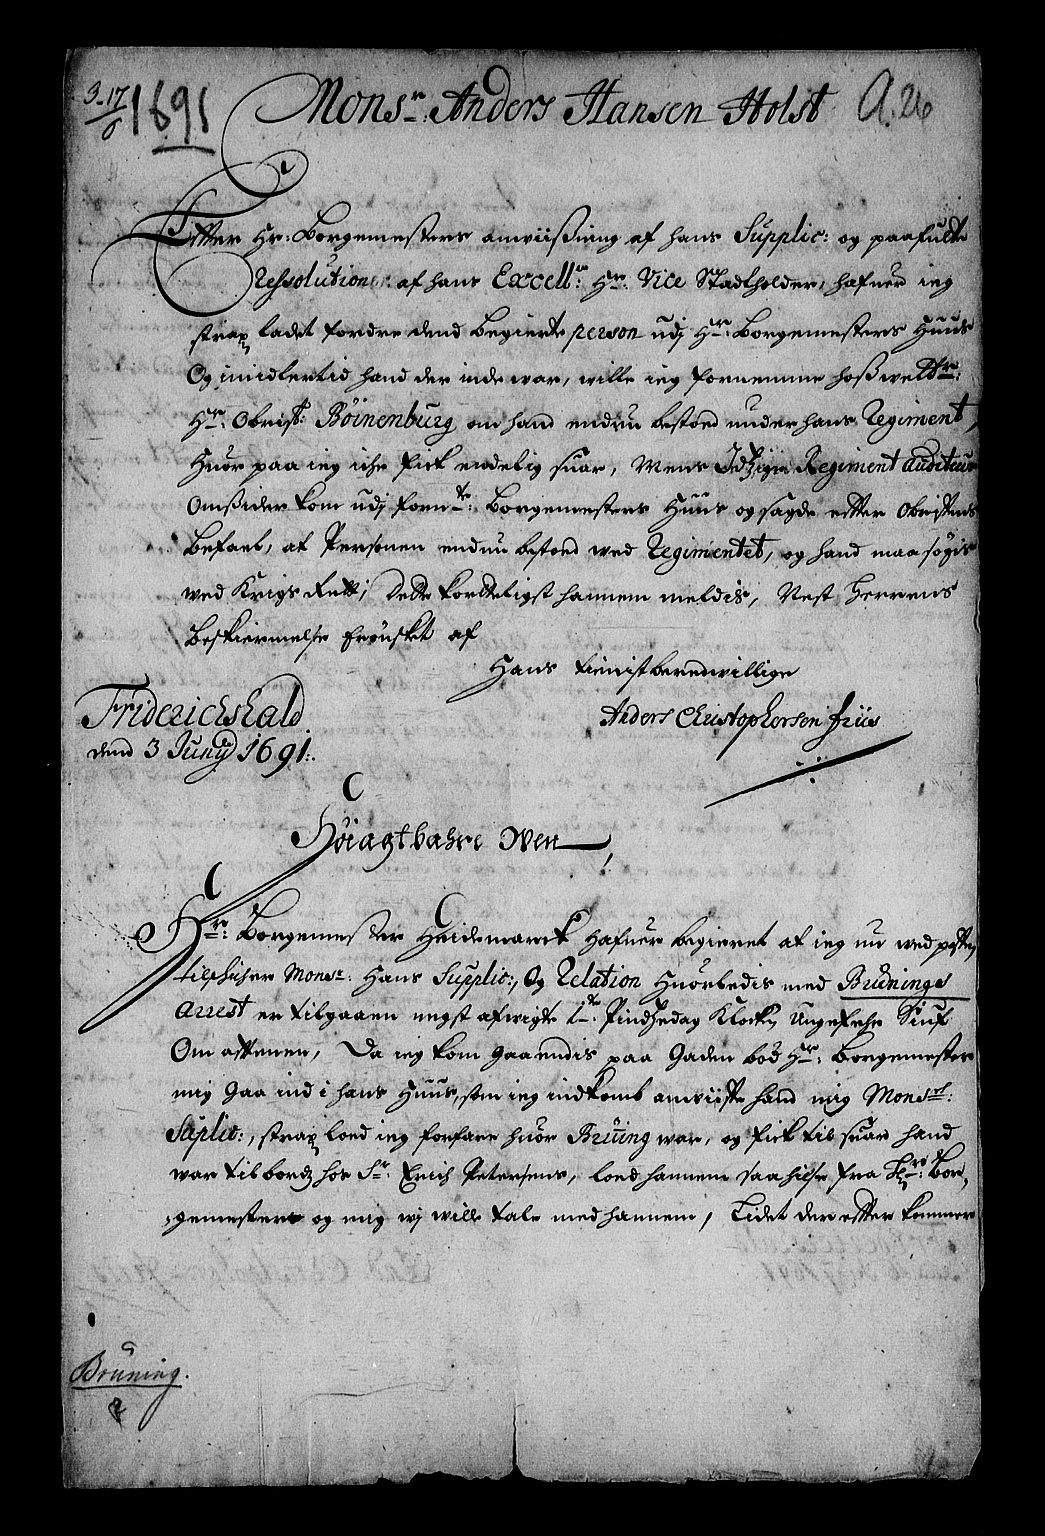 3-17/6 1691 Monsr: Anders Hansen Holst A. 26
Efter Hr: Borgemesters anviißning af hans Supplic: og paafulte
Ressolution af hans Excellr: Hr: Vice Stadtholder, hafuer ieg
strax ladet fordre dend begierte person udj Hr: Borgemesters Huus
Og imidlertid hand der inde war, wille ieg fornemme hoß weltbr:
Hr: Obrist: Böinenburg om hand endnu bestoed under hans Regiment,
Huor paa ieg iche fick endelig suar, Mens Regiment Auditeur
Omßider kom udj fornte: Borgemesters Huus og sagde efter Obristens
Befael, at Personen endnu bestoed wed Regimentet, og hand maa søgis
wed Krigs Rett, Dette kortteligst hannem meldis, Nest Herrens
Beskiermelse Erønsket af
Hans tienistberedwillige
Anders Christophersen Friis
Friderichshald
dend 3 Junij 1691:.
Høiagtbahre Wen,
Hr: Borgemester Heidemarck hafuer begieret at ieg nu wed posten
tilschicher Monsr: Hans Supplic:, Og Relation Huorledis med Brüninge
Arrest er tilgaaen negst afwigte 2te: Pindßedag Klocken Ungefehr Siuf
Om aftenen, Da ieg kom gaaendis paa Gaden bød Hr: Borgemester
mig gaa ind i hans Huus, som ieg indkomb anwiiste hand mig Monsrs:
Suplic:, strax loed ieg forfare huor Brüing war, og fick til suar hand
war til bordz hos Sr: Erich Petersens, loed hannem saa hilse fra Hr: Bor,
,gemester og mig wj wille tale med hannem, Lidet der efter kommer
Brüning.